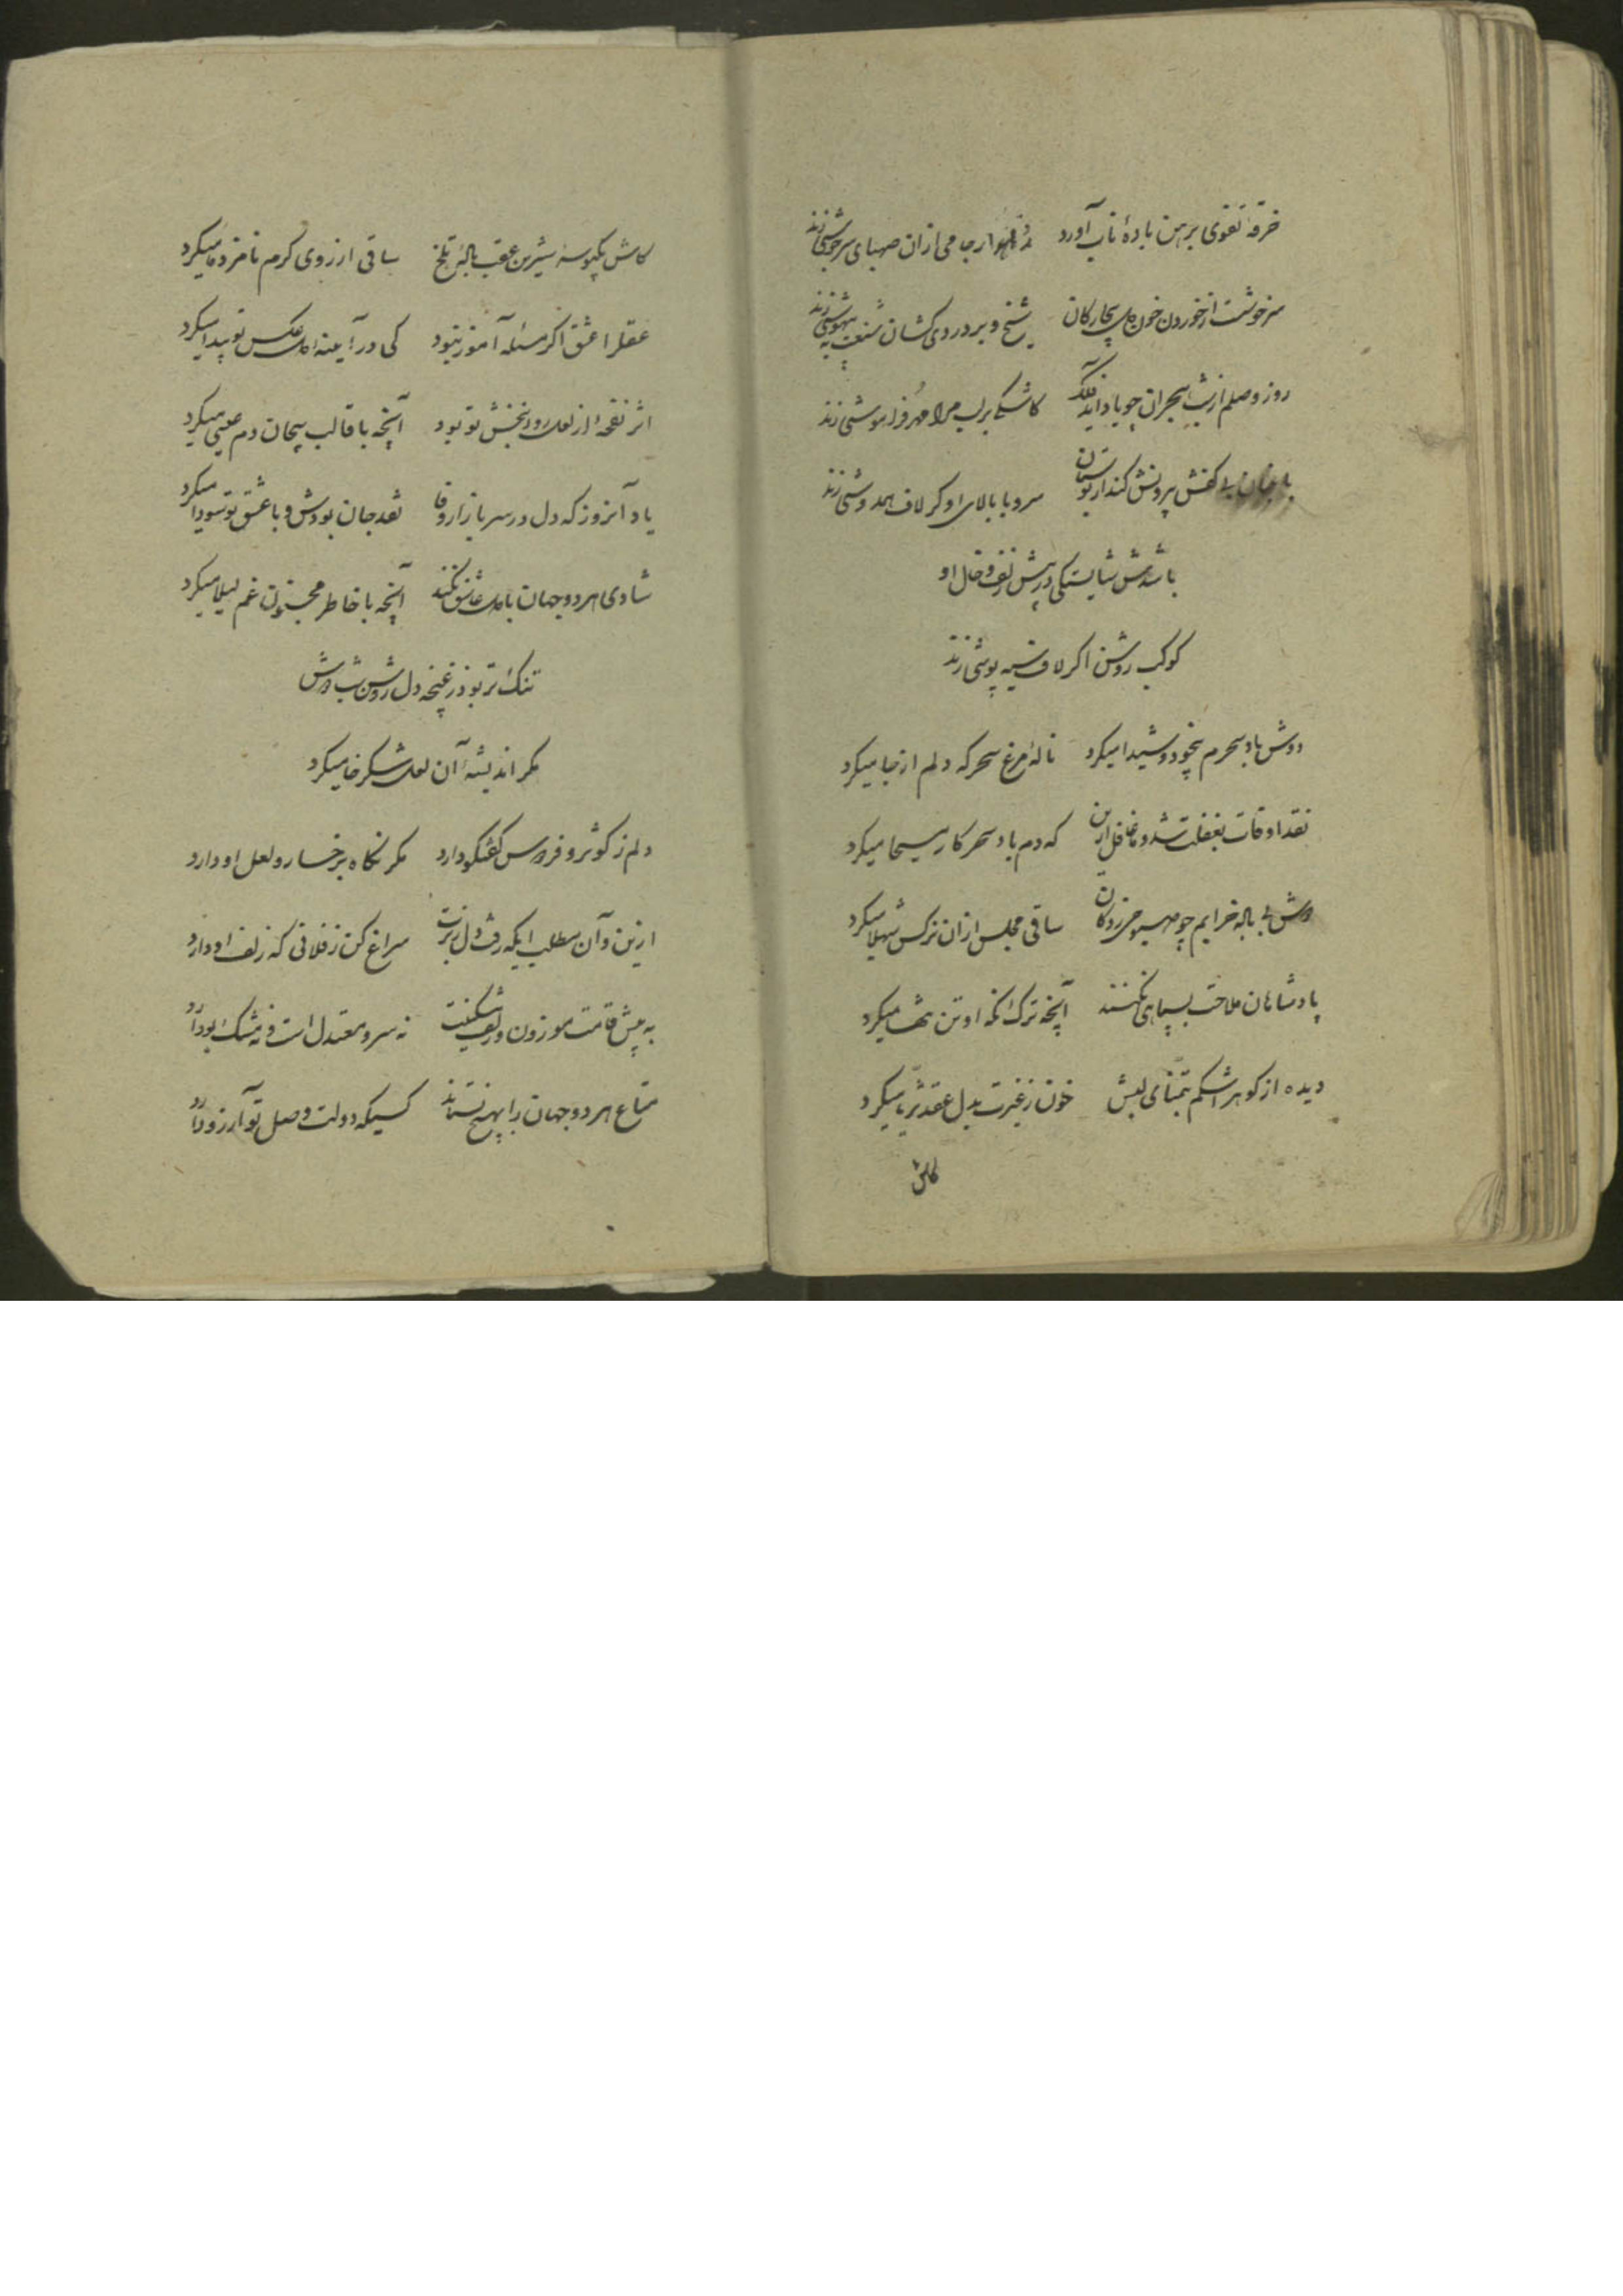 خرقهٔ تقوی برهن بادهٔ ناب آورد جامی ازان صهبای سرجوشی زند
سرخوشست از خوردن خون دل بیچارکان شیخ و بر دردی کشان شنعت به بیهوشی زند
روز وصلم از شب هجران چو یاد آید فلک کاشکی برلب مرا مهر فراموشی زند
باغبان بی کفش بیرونش کند از بوستان سرو با بالای او کر لاف همدوشی زند
باشدش شایستکی در پیش زلف و خال او
کوکب روشن اکر لاف سیه پوشی زند
دوش باد سحرم بیخود و شیدا میکرد نالهٔ مرغ سحر که دلم از جا میکرد
نقد اوقات بغفلت شد و غافل ازین که دم باد سحر کار مسیحا میکرد
دوش بی باله خرابم چو صبوحی زدکان ساقی مجلس ازان نرکس شهلا میکرد
پادشاهان ملاحت بسپاهی نکنند آنچه ترک نکه او تن تنها میکرد
دیده از کوهر اشکم بتمنای لبش خون ز غیرت بدل عقد ثریا میکرد
کاش
کاش یکبوسهٔ شیرین عقب بالهٔ تلخ ساقی از روی کرم نامزد ما میکرد
عقلرا عشق اکر مسئله آموز نبود کی در آیینهٔ دل عکس تو پیدا میکرد
اثر نفحهٔ از لعل روانبخش تو بود آنچه با قالب بیجان دم عیسی میکرد
یاد آنروز که دل در سر بازار وفا نقد جان بودش و با عشق تو سودا میکرد
شادی هر دو جهان با دل عاشق نکند آنچه با خاطر مجنون غم لیلا میکرد
تنک تر بود ز غنچه دل روشن شب دوش
مکر اندیشهٔ آن لعل شکرخا میکرد
دلم ز کوثر و فردوس کفتکو دارد مکر نکاه برخسار و لعل او دارد
ازین و آن مطلب ایکه رفت دل ز برت سراغ کن ز فلانی که زلف او دارد
به پیش قامت موزون و زلف مشکینت نه سرو معتدل است و نه مشک بو دارد
متاع هر دو جهان را بهیچ نستاند کسیکه دولت وصل تو آرزو دارد